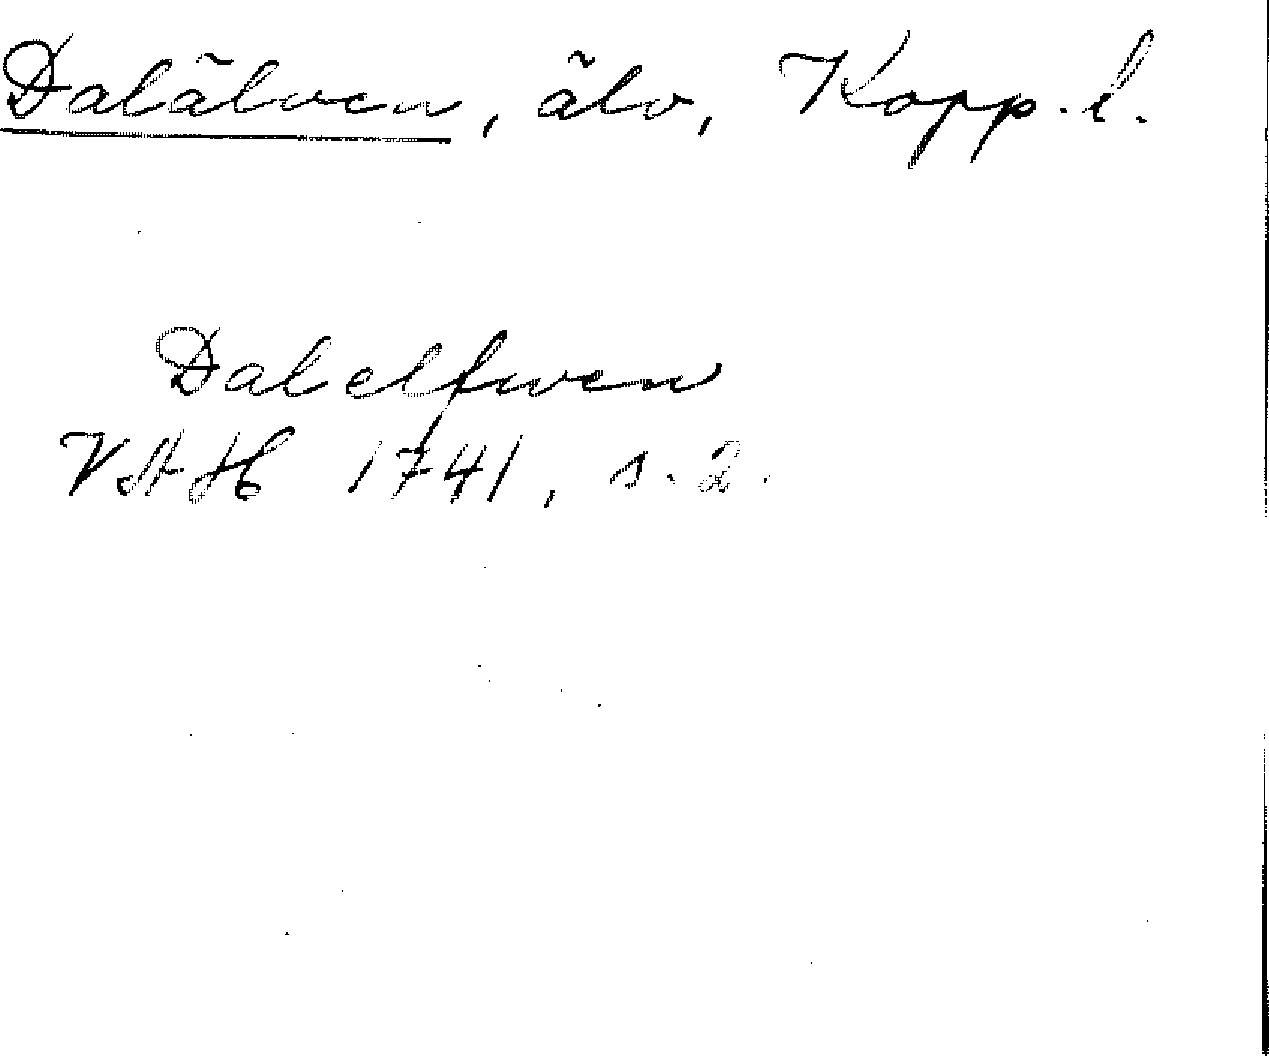 Dalälven, älv, Kopp. l.
Dalelfwen
VAH 1741, s. 2.